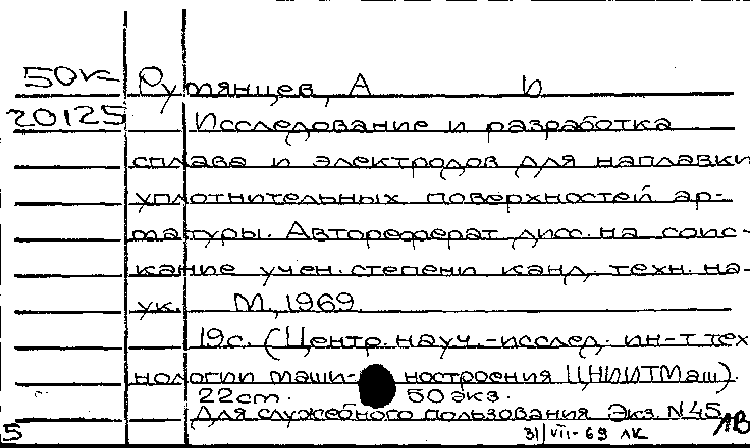 50к Румянцев, А И
20125 Исследование и разработка
сплава и электродов для наплавки
уплотнительных поверхностей ар-
матуры. Автореферат дисс. на соис-
кание учен. степени канд. техн. на-
ук. М., 1969.
19с. (Центр. науч.-исслед. ин-т тех
нологии маши- ностроения ЦНИИТМаш).
22cm. 50 экз.
Для служебного пользования Экз. N45
5 31/VII-69 ЛК ЛВ